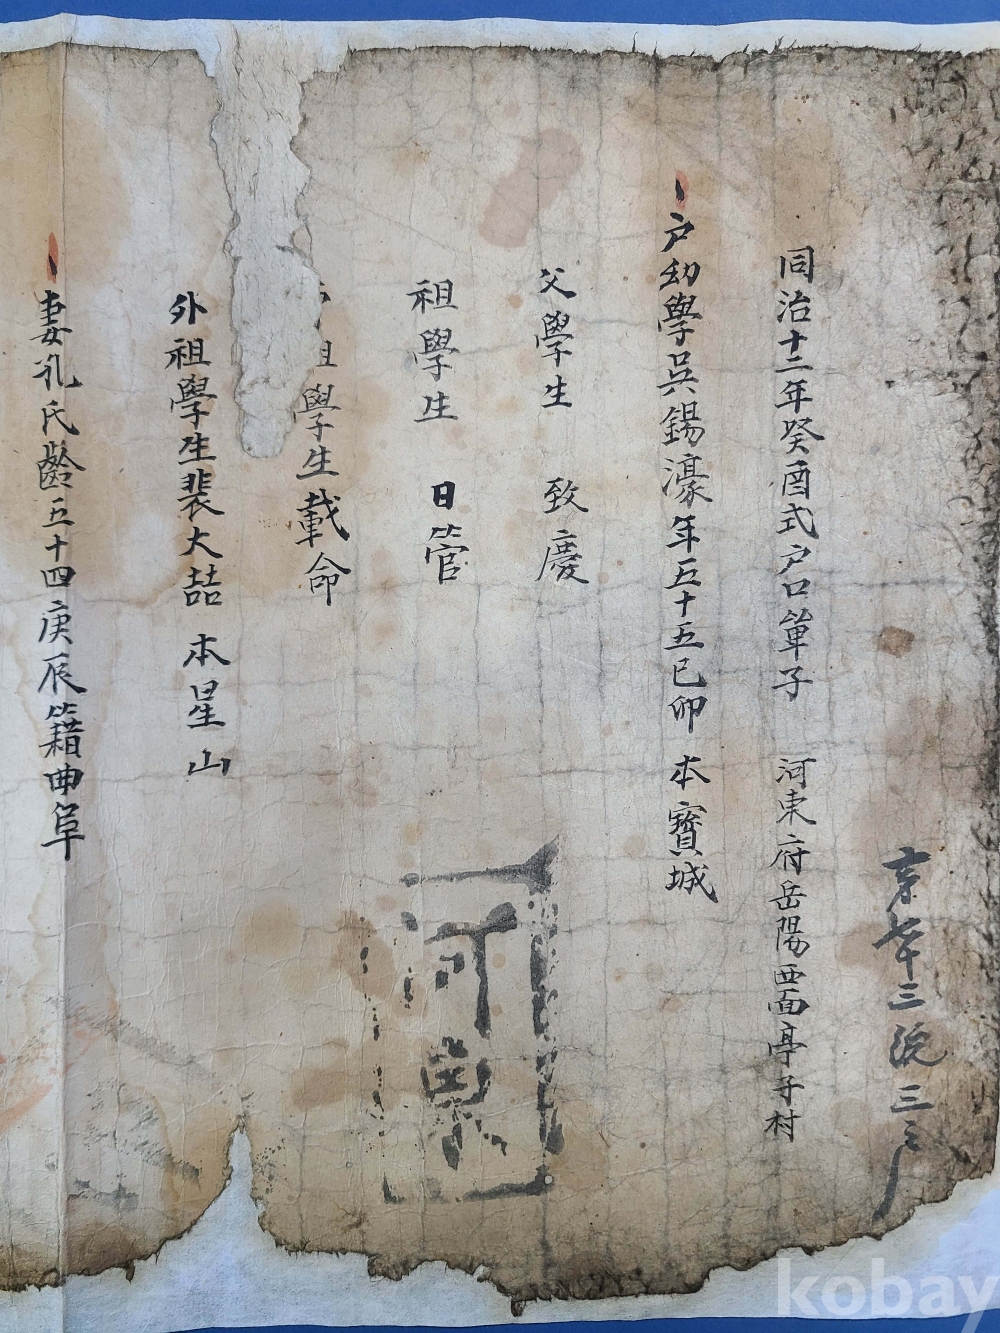 同治十二年癸酉式戶口單子 河東府岳陽西面亭子村
三統三戶
戶幼學吳錫濠年五十五己卯 本寶城
父學生 致慶
祖學生 日管
祖學生載命
外祖學生裴大喆 本星山
妻孔氏齡五十四庚辰籍曲阜
河東
kobay